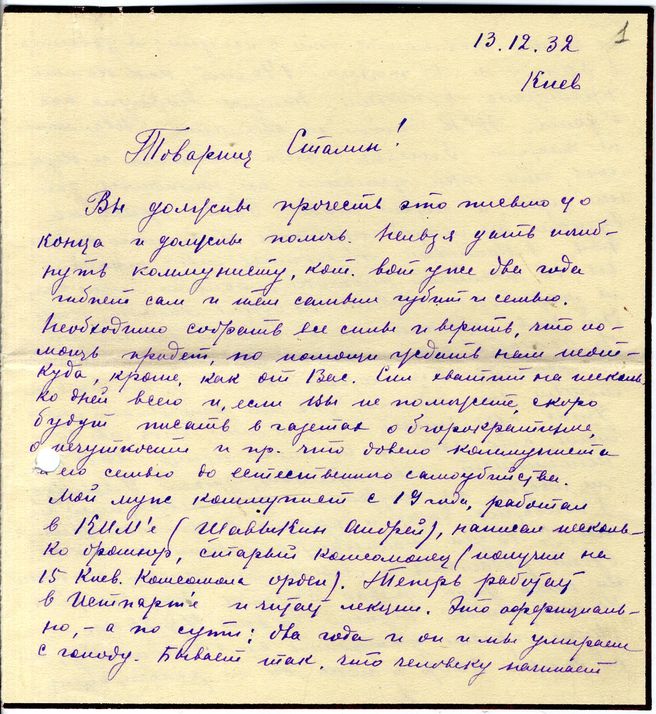 13.12.32 1
Киев
Товарищ Сталин!
Вы должны прочесть это письмо до
конца и должны помочь. Нельзя дать погиб-
нуть коммунисту, кот. вот уже два года
гибнет сам и тем самым губит и семью.
Необходимо собрать все силы и верить, что по-
мощь придет, но помощи ждать нам неот-
куда, кроме, как от Вас. Сил хватит на несколь-
ко дней всего и, если Вы не поможете, скоро
будут писать в газетах о бюрократизме,
о нечуткости и пр. что довело коммуниста
и его семью до естественного самоубийства.
Мой муж коммунист с 19 года, работал
в КИМ'е (Шавыкин Андрей), написал несколь-
ко брошюр, старый комсомолец (получил на
15 Киев. Комсомола орден). Теперь работает
в Истпарт'е и читает лекции. Это оффициаль-
но, – а по сути: два года и он и мы умираем
с голоду. Бывает так, что человеку начинает